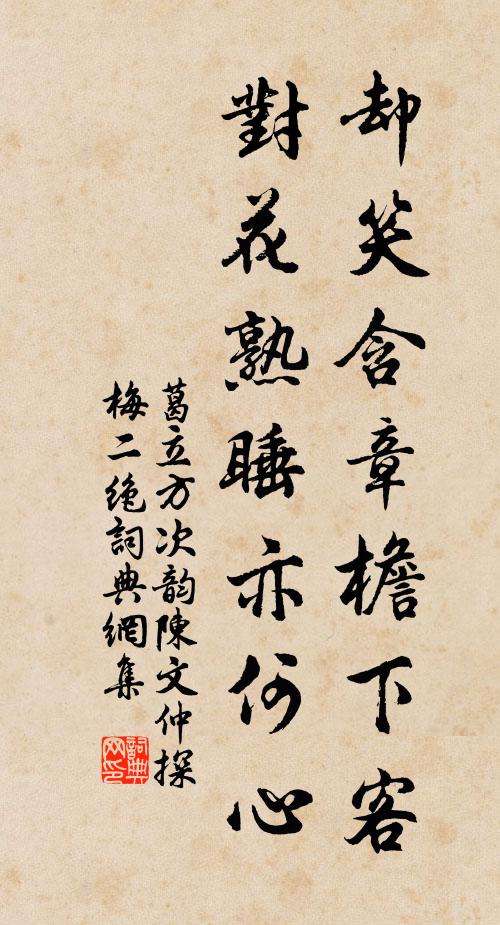 却笑含章檐下客
對花熟睡亦何心
葛立方次韵陳文仲探
梅二绝詞典網集
詞典網印